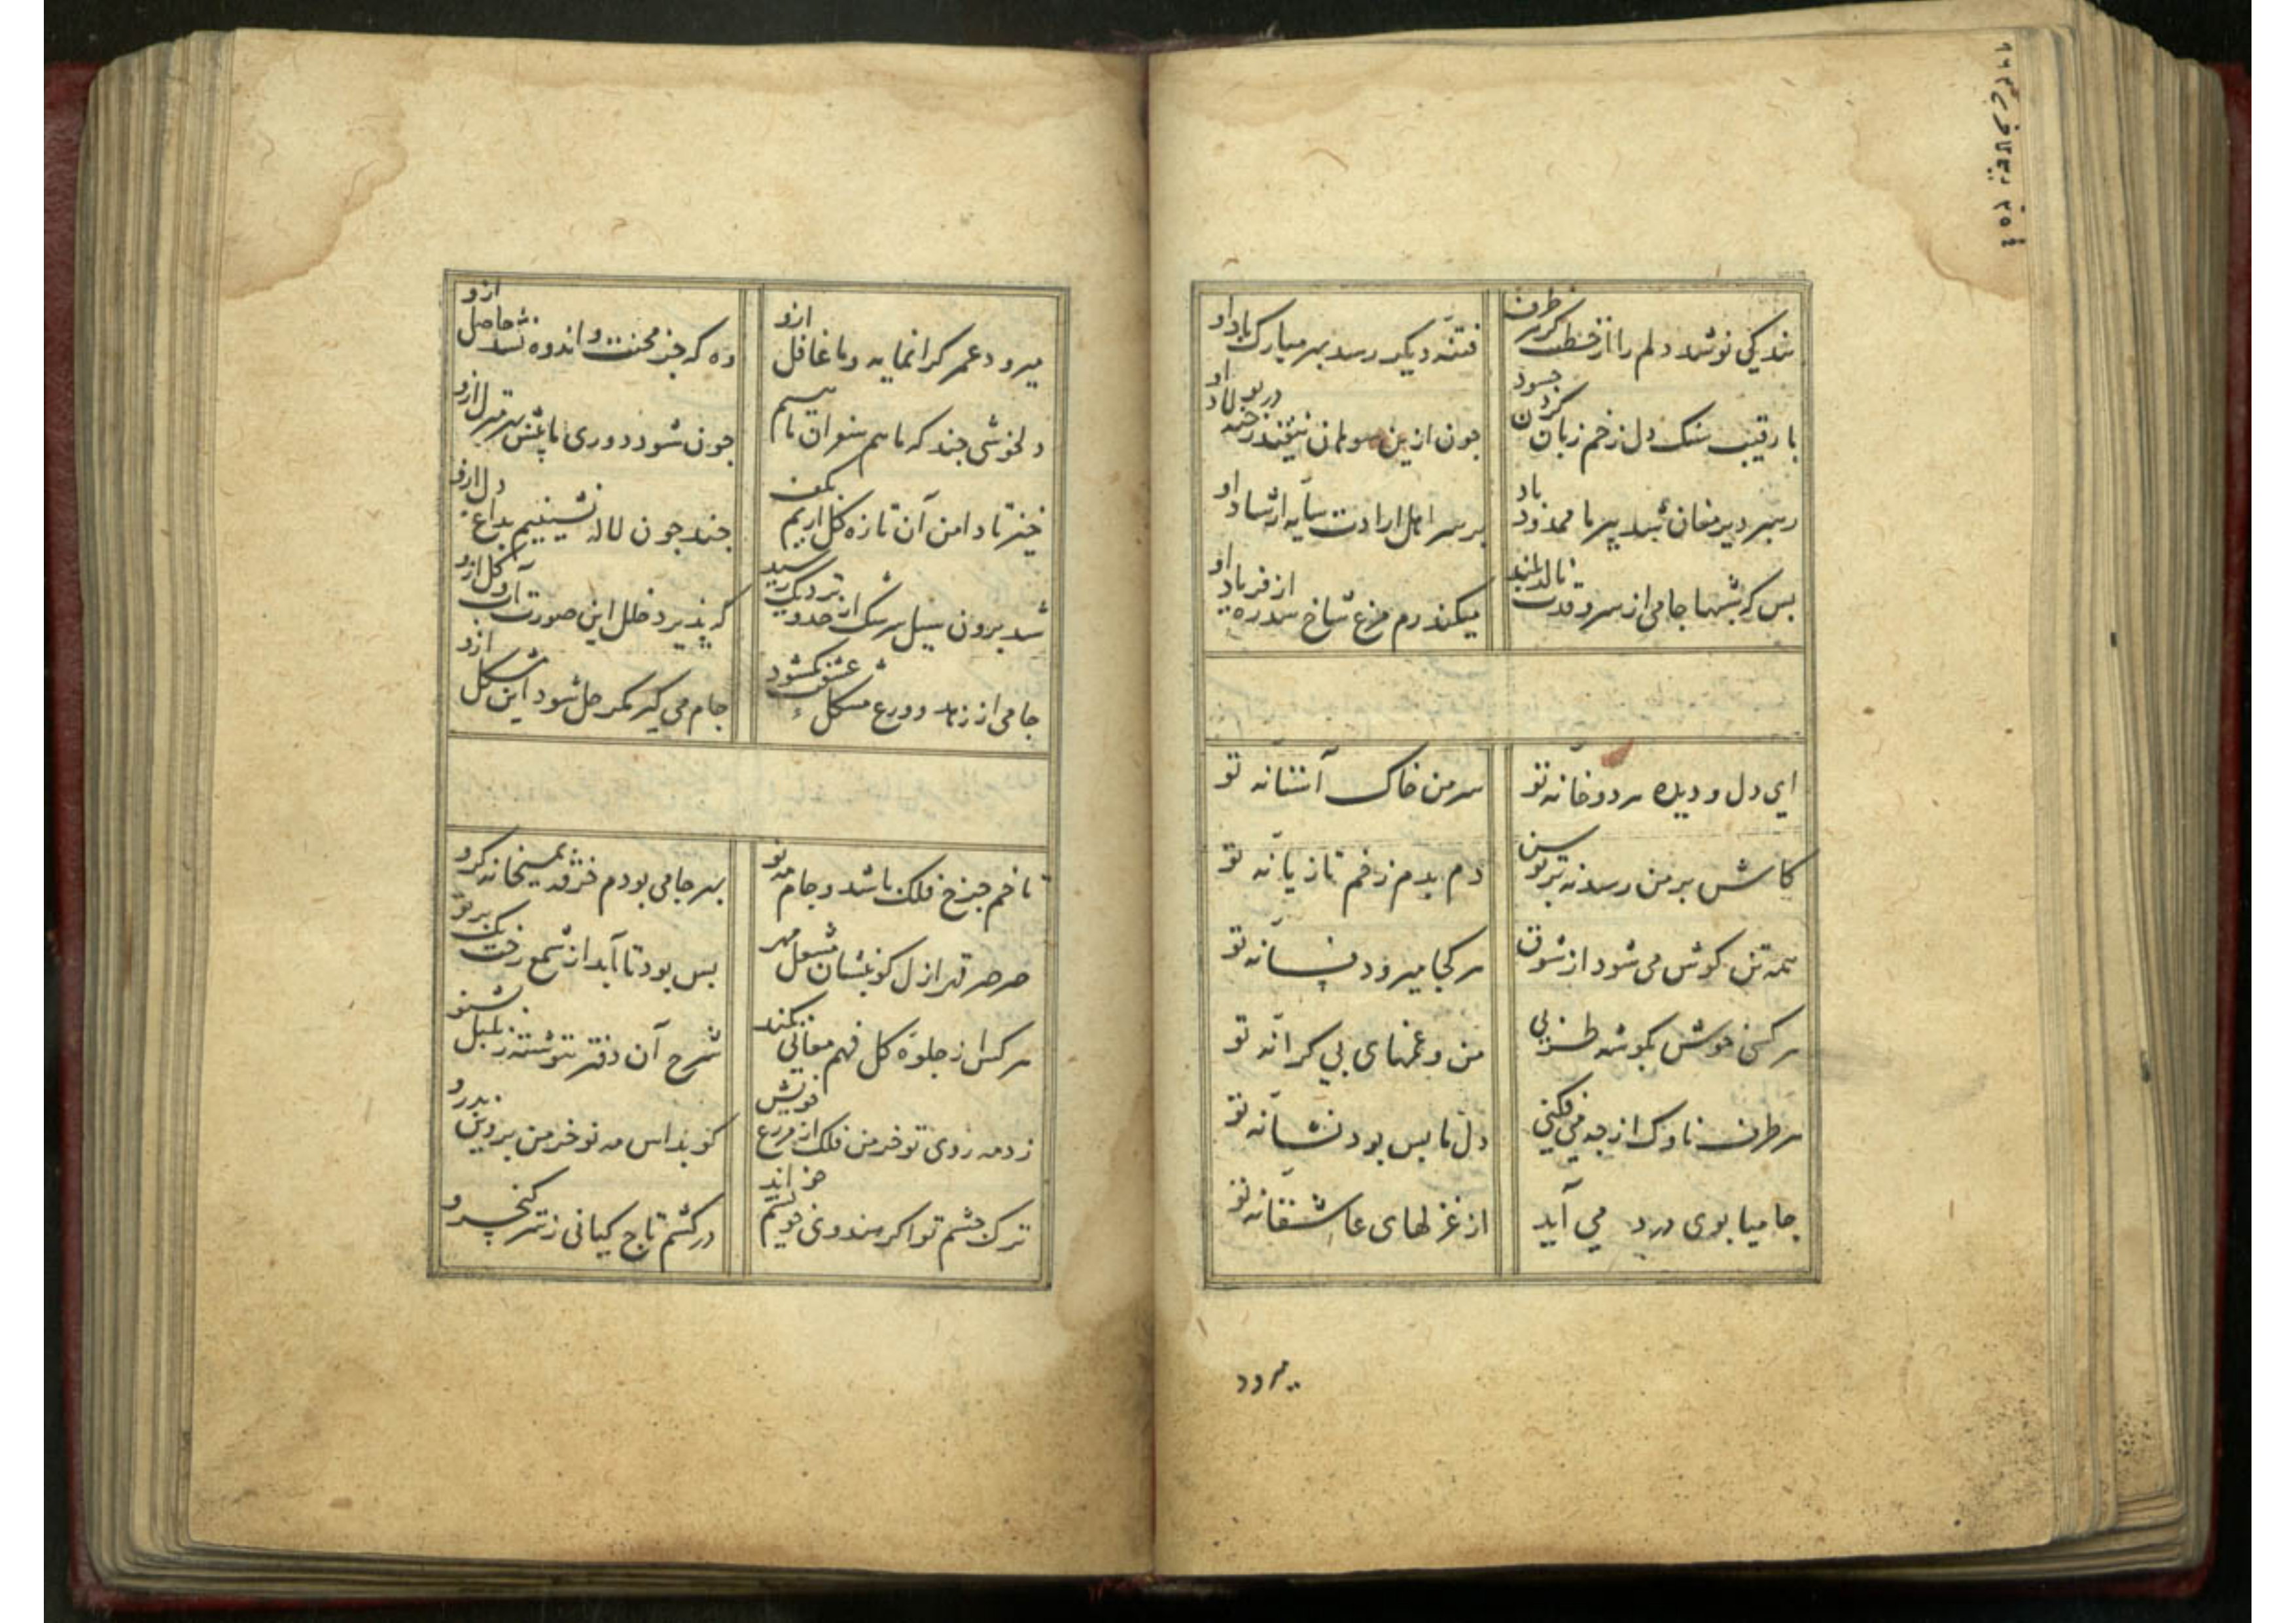 شد یکی نوشد دلم را از خطت کز هر طرف
فتنه دیگر رسد بهر مبارک باد او
با رقیب سنک دل زخم زبان کردن جسود
جون ازین سوهان نیفتد رخنه در بولاد او
رهبر دیر مغان شد پیر ما ممدود باد
بر سر اهل ارادت سایه ارشاد او
بس که شبها جامی از سرو قدت نالد بلند
میکند رم مرغ شاخ سدره از فریاد او
ای دل و دیده هر دو خانه تو
سر من خاک آستانه تو
کاش بر من رسد نه بر توسن
دم بدم زخم تازیانه تو
همه تن کوش می شود از شوق
هر کجا میرود فسانه تو
هر کسی خوش بکوشه طربی
من و غمهای بی کرانه تو
هر طرف ناوک از جه می فکنی
دل ما بس بود نشانه تو
جامیا بوی درد می آید
از غزلهای عاشقانه تو
میرود
میرود عمر کرانمایه و ما غافل ازو
وه که جز محنت و اندوه نشد حاصل ازو
دلخوشی جند که ما هم سفر ان ماهیم
جون شود دوری ما بیش بهر منزل ازو
خیز تا دامن آن تازه کل اریم بکف
جند جون لاله نشینیم بداغ دل ازو
شد برون سیل سرشک از حد و نزدیک رسید
که پذیرد خلل این صورت آب و کل ازو
جامی از زهد و ورع مشکل عشقت نکشود
جام می کیر مکر حل شود این مشکل ازو
تا خم جرخ فلک باشد و جام مه نو
بهر جامی بودم خرقه بمیخانه کرو
صرصر قهر ازل کو بنشان مشعل مهر
بس بود تا ابد از شمع رخت یک برتو
هر کس از جلوه کل فهم معانی نکند
شرح آن دفتر ننوشته ز بلبل بشنو
زد مه روی تو خرمن فلک از مزرع خویش
کو بداس مه نو خرمن پروین بدرو
ترک جشم تو اکر هندوی خویشم خواند
درکشم تاج کیانی ز سر کیخسرو